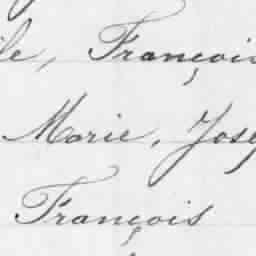 le, François
Marie, Jose
François